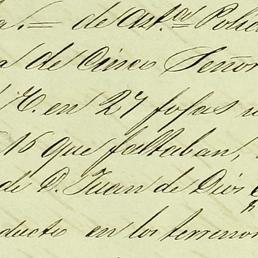 de Ast.as Polic
a de Cinco Señor
en 27 fojas
16 que faltaban,
de D. Juan de Dios
ducto en los terreno